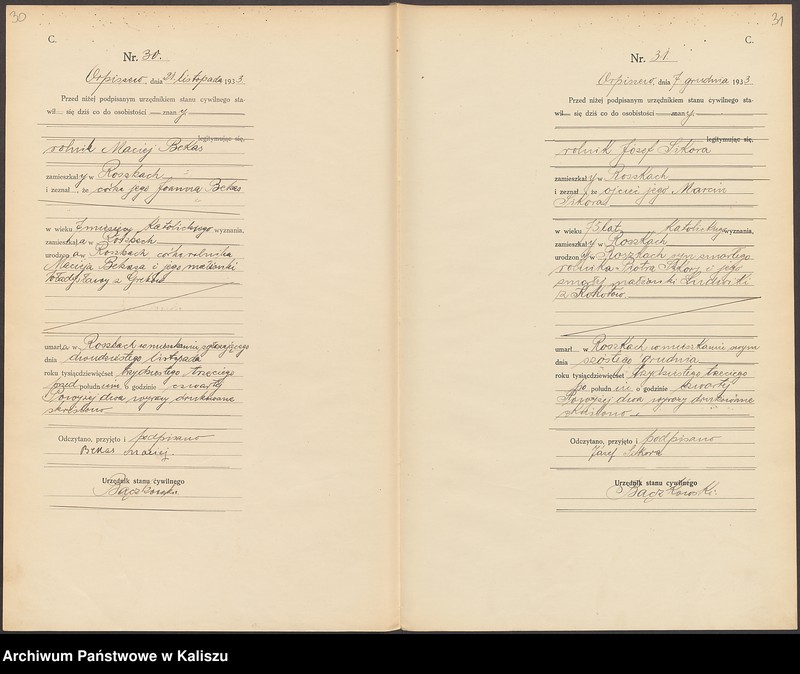 30
C.
Nr. 30.
Orpiszew, dnia 21. listopada 1933
Przed niżej podpisanym urzędnikiem stanu cywilnego sta-
wił — się dziś co do osobistości — znany
legitymując się,
rolnik Maciej Bekas
zamieszkały w Roszkach
i zeznał, że córka jego Joanna Bekas
w wieku miesięcy Katolickiego wyznania,
zamieszkała w Roszkach
urodzona w Roszkach córka rolnika
Macieja Bekasa i jego małżonki
Władysławy z
umarła w Roszkach w mieszkaniu zgłaszającego
dnia dwudziestego listopada
roku tysiącdziewięćset trzydziestego trzeciego
przed południem o godzinie czwartej
Powyżej dwa wyrazy drukowane
skreślono
Odczytano, przyjęto i podpisano
Bekas Maciej.
Urzędnik stanu cywilnego
Bączkowski
31
C.
Nr. 31.
Orpiszew, dnia 7 grudnia 1933
Przed niżej podpisanym urzędnikiem stanu cywilnego sta-
wił — się dziś co do osobistości — znany.
legitymując się,
rolnik Józef Sikora
zamieszkały w Roszkach
i zeznał, że ojciec jego Marcin
Sikora
w wieku 75 lat Katolickiego wyznania,
zamieszkały w Roszkach
urodzony w Roszkach syn zmarłego
rolnika Piotra Sikory i jego
zmarłej małżonki Ludwiki
z
umarł w Roszkach w mieszkaniu swym
dnia szóstego grudnia
roku tysiącdziewięćset trzydziestego trzeciego
po południu o godzinie czwartej
Powyżej dwa wyrazy drukowane
skreślono
Odczytano, przyjęto i podpisano
Józef Sikora
Urzędnik stanu cywilnego
Bączkowski.
Archiwum Państwowe w Kaliszu